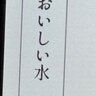 おいしい水